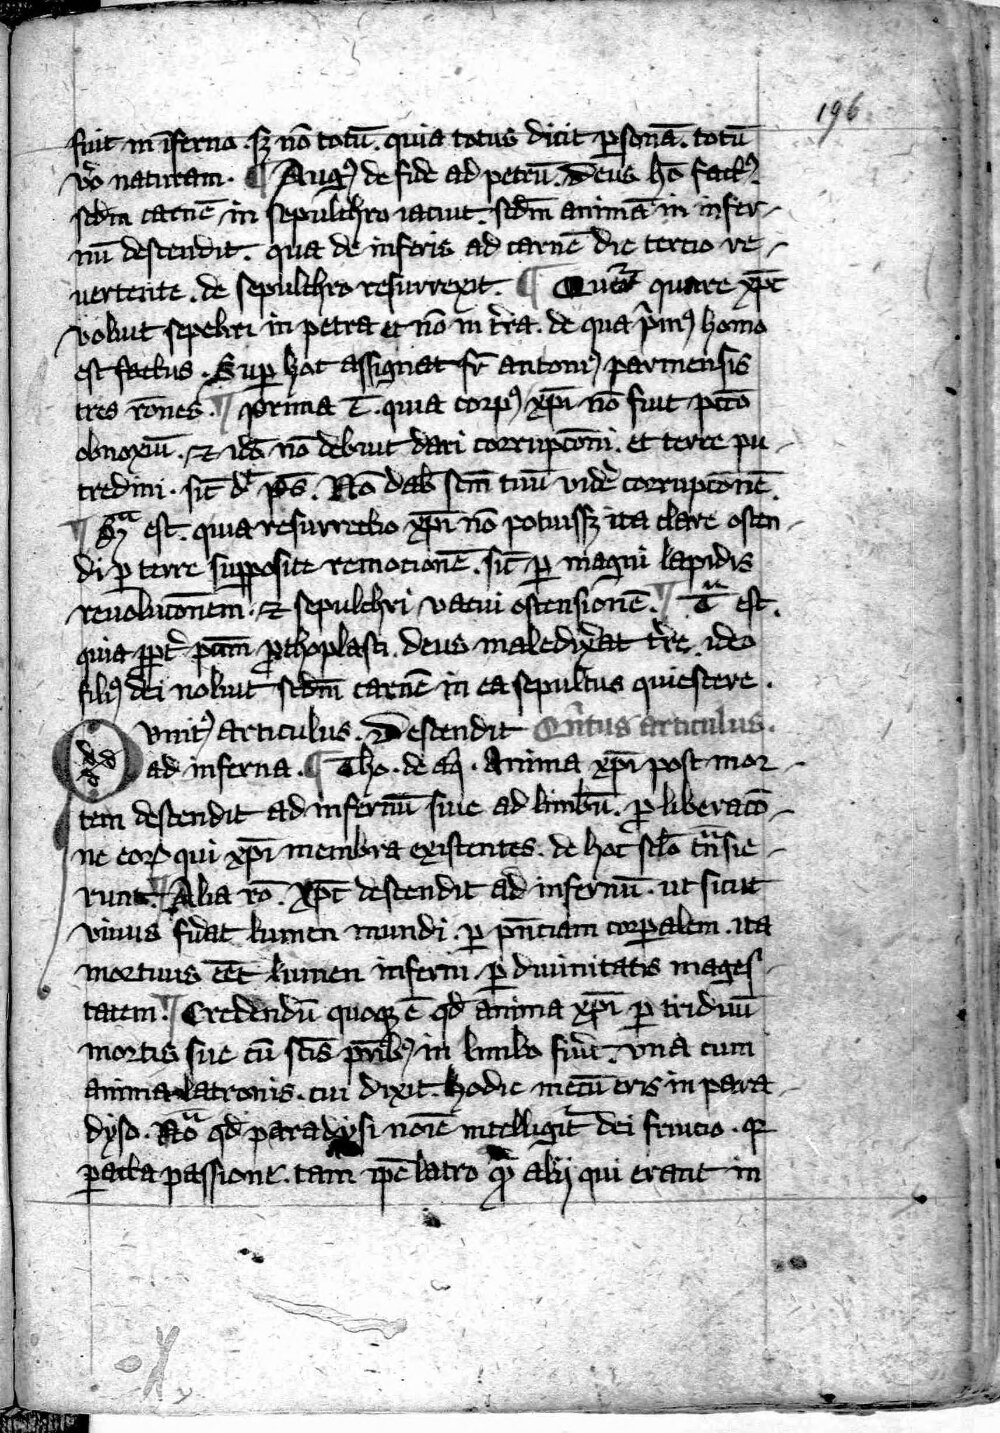 196
fuit in īferno . sꝫ nō totū . quia totus dicit ꝑsonā . totū
v̊o naturam . ¶ Augꝰ de fide ad petrū . Deus hō factꝰ .
scdm carnē in sepulchro iacuit . scdm animā in infer-
nū descendit . qua de inferis ad carnē die tercio re-
vertente . de sepulchro resurrexit . ¶ Querit᷑ quare xp̄c
voluit sepeliri in petra et nō in t̄ra . de qua p̄mꝰ homo
est factus . Suꝑ hoc assignat fr̄ antoniꝰ parmensis
tres rōnes . ¶ prima ē . quia corpꝰ xp̄i nō fuit pctō
obnoxiū . ⁊ idō nō debuit dari corrupcōni . et terre pu-
tredini . sic̄ dc̄ ps̄ . Nō dab̄ scm̄ tuū vider̄ corrupcōnē .
¶ Sꝫᵃ est . quia resurrectio xp̄i nō potuissꝫ ita clare osten-
di ꝑ terre supposite remocionē . sic̄ ꝑ magni lapidis
revolucōnem . ⁊ sepulchri vacui ostensionē . ¶ Tᵃ est .
quia ꝓpt̄ pctm̄ ꝓthoplasti . deus maledix̄at t̄re . ideo
filiꝰ dei noluit scdm̄ carnē in ea sepultus quiescere .
Quintꝰ articulus . Descendit Qn̄tus articulus .
ad inferna . ¶ Tho . de aq̄ . Anima xp̄i post mor-
tem descendit ad infernū siue ad limbū . ꝓ liberacō-
ne eoꝝ qui xp̄i membra existentes . de hoc sc̄lo tn̄sie-
runt . ¶ Alia rō . xp̄c descendit ad infernū . ut sicut
vivus fūat lumen mundi . ꝑ pn̄ciam corꝑalem . ita
mortuus eēt lumen inferni . ꝑ divinitatis mages-
tatem . ¶ Credendū quoqꝫ ē qd̄ anima xp̄i ꝑ triduū
mortis sue cū sc̄is pr̄ibꝰ in limbo fuit . una cum
anima latronis . cui dixit . hodie mecū eris in para-
dyso . Noᵃ qd̄ paradysi noīe intelligit᷑ dei fruicio . qꝛ
ꝑacta passione . tam ip̄e latro qᷓ alij qui erant in